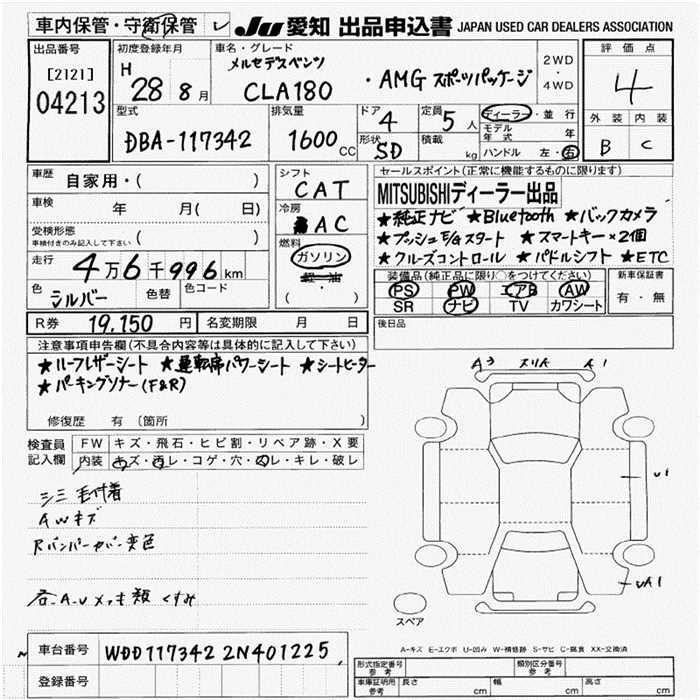 車内保管・守衛保管 レ JU 愛知 出品申込書 JAPAN USED CAR DEALERS ASSOCIATION
出品番号 初度登録年月 車名・グレード 2WD・4WD 評価点
[2121] 04213
H 28 8月
メルセデスベンツ
CLA180 ・AMG スポーツパッケージ
4
型式 排気量 ドア 定員 ディーラー・並行 外装 内装
DBA-117342 1600cc 4 5人 モデル年式 年 B C
形状 SD 積載 kg ハンドル 左・右
車歴 自家用・( ) シフト CAT
セールスポイント(正常に機能するものに限ります)
車検 年 月( 日) 冷房 AC
MITSUBISHIディーラー出品
★純正ナビ ★Bluetooth ★バックカメラ
受検形態 ( )
車検付きのみ記入して下さい
★プッシュE/Gスタート ★スマートキー×2個
走行 4万6千996km 燃料 ガソリン 軽・油 ( )
★クルーズコントロール ★パドルシフト ★ETC
色 シルバー 色替 色コード
装備品(純正品に限り○をつけてください) 新車保証書
PS PW エアB AW 有・無
SR ナビ TV カワシート
R券 19,150円 名変期限 月 日
後日品
注意事項申告欄(不具合内容等は具体的に記入して下さい)
★ハーフレザーシート ★運転席パワーシート ★シートヒーター
★パーキングソナー(F&R)
修復歴 有 〔箇所 〕
A3 スリ久 A1
検査員記入欄 FW キズ・飛石・ヒビ割・リペア跡・X要
内装 キズ・汚レ・コゲ・穴・スレ・キレ・破レ
シミ 毛付着
AWキズ
Rバンパーカバー変色
U1
UA1
スペア
A-キズ E-エクボ U-凹み W-補修跡 S-サビ C-腐食 XX-交換済
車台番号 WDD117342 2N401225
登録番号
形式指定番号 参考 類別区分番号 参考
車庫証明用 参考 長さ cm 幅 cm 高さ cm